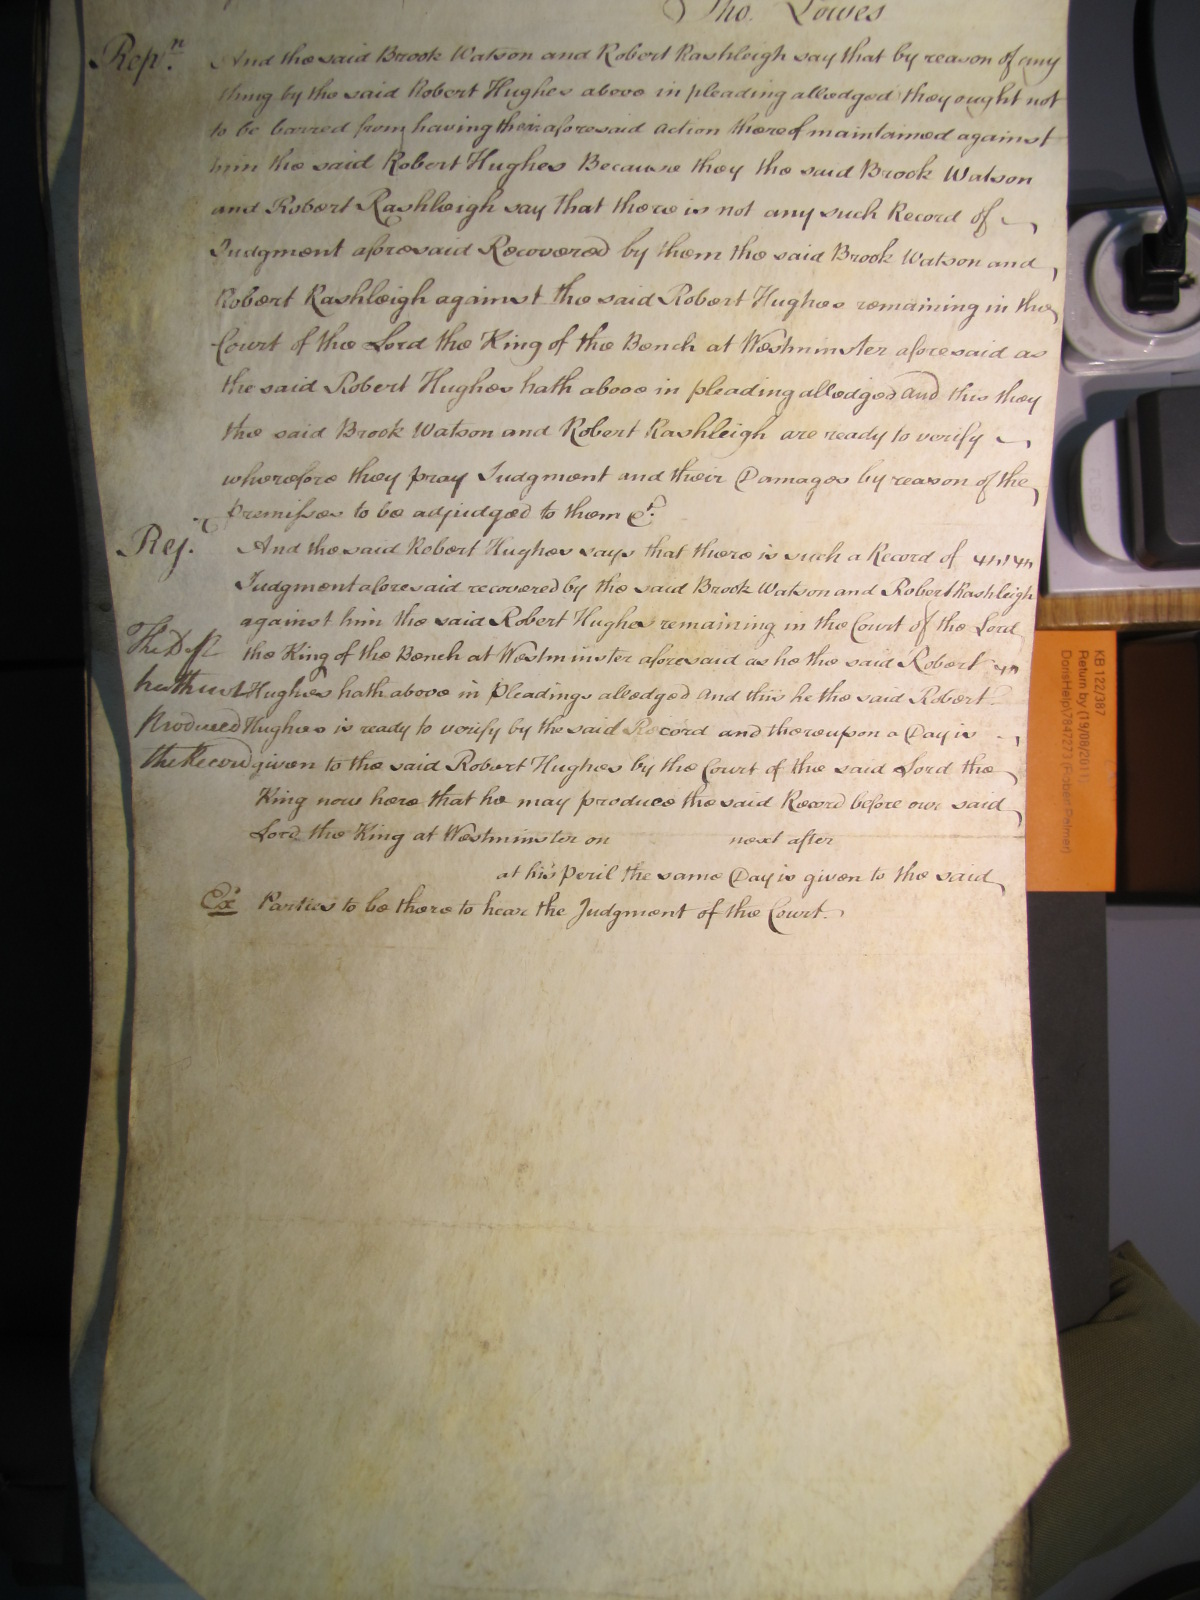 Tho. Lowes
Repn. And the said Brook Watson and Robert Rashleigh say that by reason of any
thing by the said Robert Hughes above in pleading alledged they ought not
to be barred from having their aforesaid action thereof maintained against
him the said Robert Hughes Because they the said Brook Watson
and Robert Rashleigh say that there is not any such Record of
Judgment aforesaid Recovered by them the said Brook Watson and
Robert Rashleigh against the said Robert Hughes remaining in the
Court of the Lord the King of the Bench at Westminster aforesaid as
the said Robert Hughes hath above in pleading alledged and this they
the said Brook Watson and Robert Rashleigh are ready to verify
wherefore they pray Judgment and their Damages by reason of the
premisses to be adjudged to them &c.
Rej. And the said Robert Hughes says that there is such a Record of
Judgment aforesaid recovered by the said Brook Watson and Robert Rashleigh
against him the said Robert Hughes remaining in the Court of the Lord
The Deft the King of the Bench at Westminster aforesaid as he the said Robert
hath not Hughes hath above in pleadings alledged and this he the said Robert
Produced Hughes is ready to verify by the said Record and thereupon a Day is
the Record given to the said Robert Hughes by the Court of the said Lord the
King now here that he may produce the said Record before our said
Lord the King at Westminster on next after
at his peril the same Day is given to the said
Ex Parties to be there to hear the Judgment of the Court.
KB 122/387
Return by (19/08/2011)
DorisHelp\7847273 (Robert Palmer)